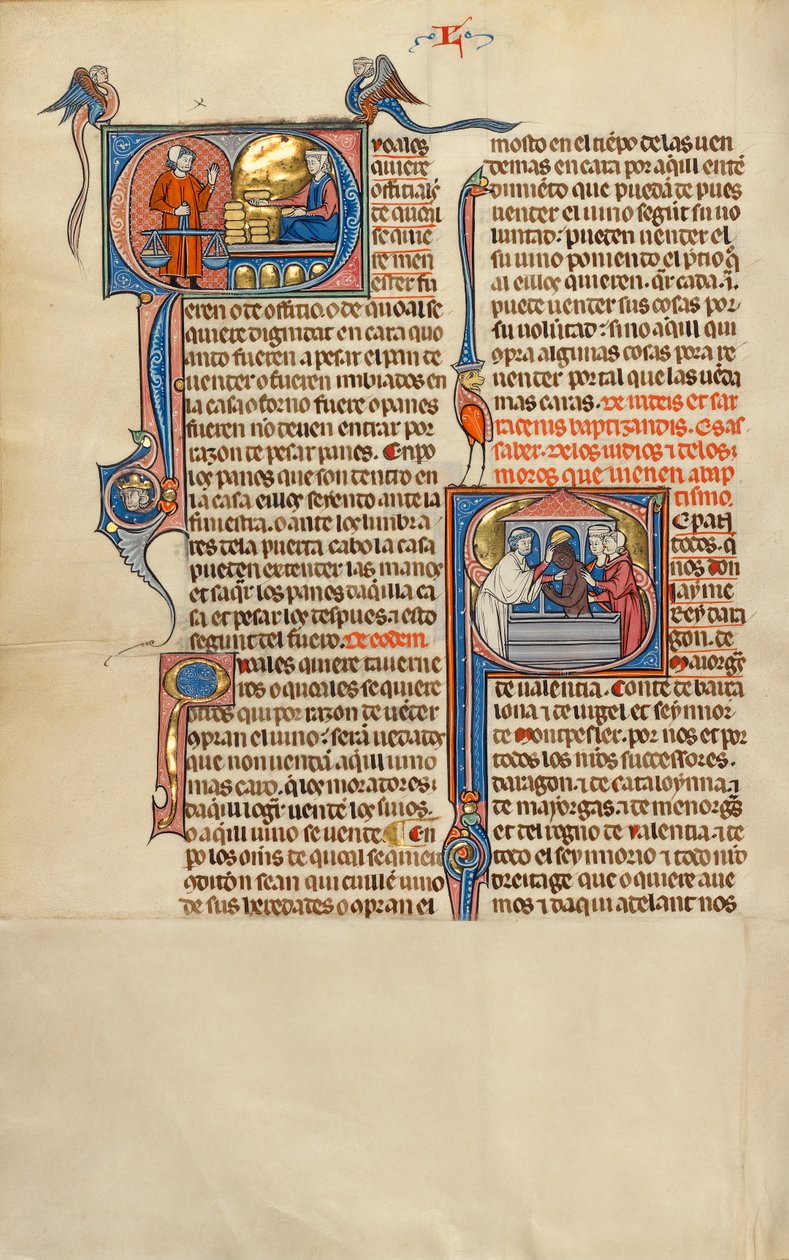 L
uoales
quiere
officiales
de quoal
se quie
re men
ester fu
eren o de officio. o de quoal se
quiere dignidat en cara quo
ando fueren a pesar el pan de
uender o fueren imbiados en
la casa o forno fuere o panes
fueren no deuen entrar por
razon de pesar panes. Enpo
los panes que son dentro en
la casa eillos seyendo ante la
finiestra. o ante los lumbra
res dela puerta cabo la casa
pueden extender las manos
et saqr los panes daquilla ca
sa et pesar los despues. ⁊ esto
segunt del fuero. De eodem
uales quiere tauerne
ros o quoales se quiere
otros qui por razon de uēder
ꝯpran el uino: sera uedado
que non uendā aqui uino
mas caro. q̄ los moradores
daqui logr̄ uende los suios.
o aqui uino se uende. En
ꝑo los oms de quoal se quiere
ꝯditōn sean qui cuillē uino
de sus heredades o ꝯpran el
mosto en el tiēpo de las uen
demas en cara por aqui entē
dimiēto que pueda de pues
uender el uino segūt su uo
luntad: pueden uender el
su uino poniendo el p̄cio q̄
al eillos quieren. q̄r cada .i.
puede uender sus cosas por
su uolūtad: sino aqui qui
ꝯpra algunas cosas pora re
uender por tal que las uēda
mas caras. De iudeis et sar
racenis baptizandis. Es as
saber. De los iudios ⁊ de los
moros que uienen a bap
tismo.
E pari
todos. q̄
nos Don
Jayme
Rey dara
gon. de
Maiorgs
de ualencia. Conte de barca
lona ⁊ de urgel et seynnor
de Montpesler. por nos et por
todos los nr̄os successores.
daragon. ⁊ de Cataloynna. ⁊
de mayorgas. ⁊ de menorgs
et del regno de ualencia. ⁊ de
todo el seynnorio ⁊ todo nr̄o
dreitage que o quiere aue
mos ⁊ daqui adelant nos